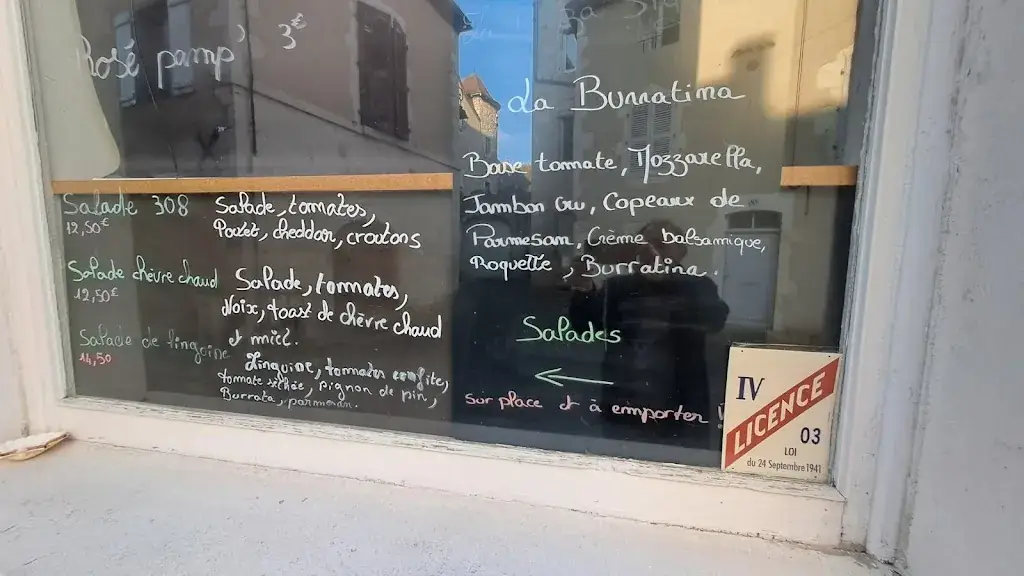 Rosé pamp' 3€
Salade 308
12,50€
Salade, tomates,
Poulet, cheddar, croutons
Salade chèvre chaud
12,50€
Salade, tomates,
Noix, toast de chèvre chaud
et miel.
Salade de linguine
14,50
Linguine, tomates confite,
tomate séchée, pignon de pin,
Burrata, parmesan.
La Burratina
Base tomate, Mozzarella,
Jambon Cru, Copeaux de
Parmesan, Crème balsamique,
Roquette, Burratina.
Salades
←
Sur place et à emporter !
IV
LICENCE
03
LOI
du 24 Septembre 1941